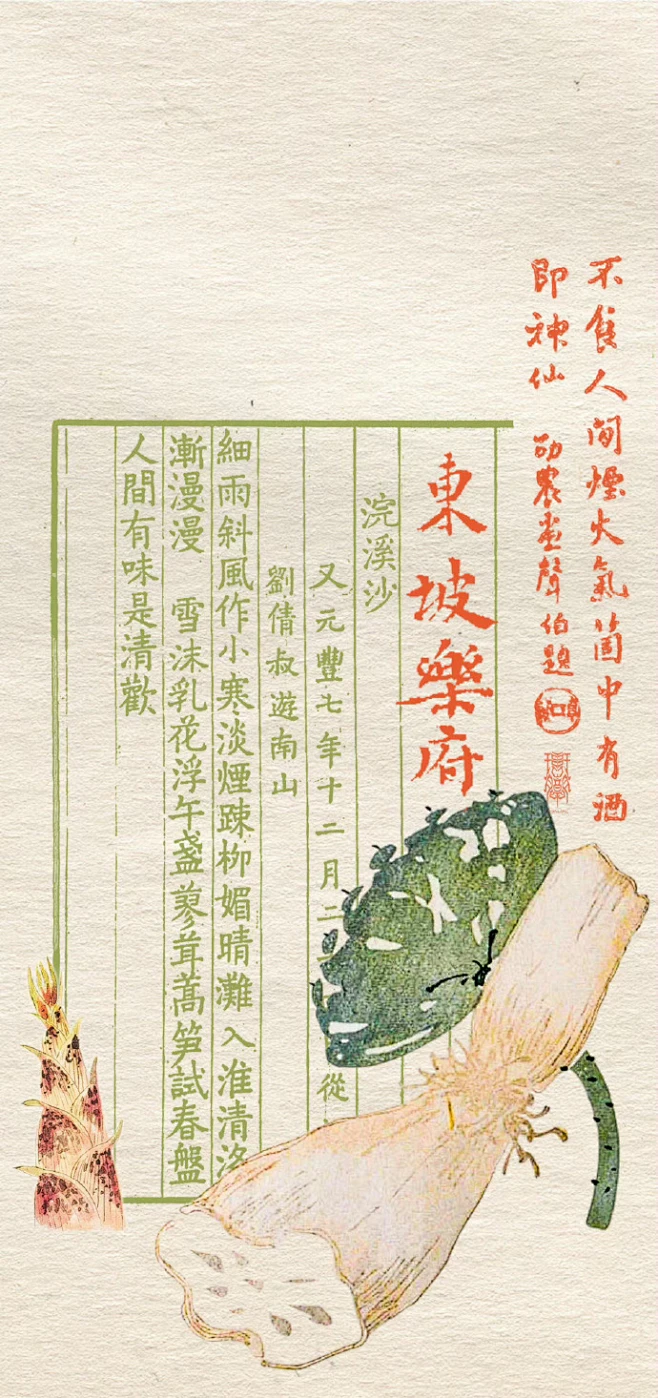 不食人间煙火氣箇中有酒
即神仙
農 聲伯題
東坡樂府
浣溪沙
又元豐七年十二月二 從
劉倩叔遊南山
細雨斜風作小寒淡煙踈栁媚晴灘入淮清洛
漸漫漫 雪沫乳花浮午盞蓼茸蒿笋試春盤
人間有味是清歡